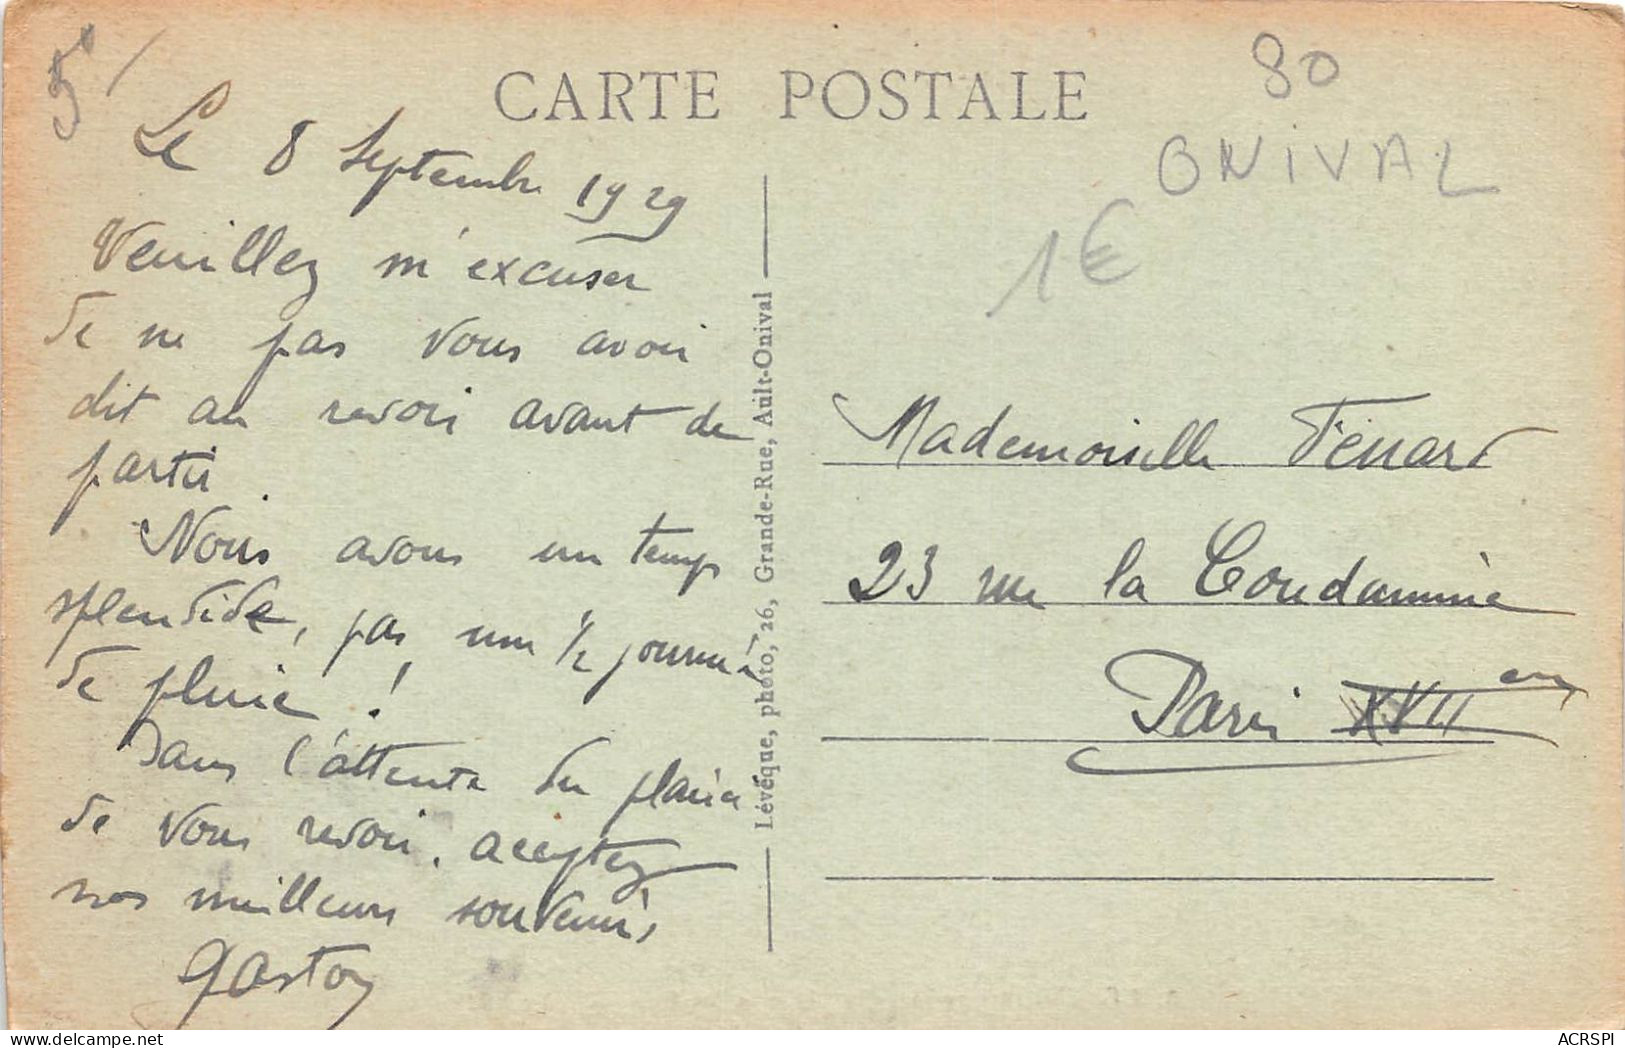 5
CARTE POSTALE
80
ONIVAL
1€
Le 8 Septembre 1929
Veuillez m'excuser
de ne pas vous avoir
dit au revoir avant de
partir.
Nous avons un temps
splendide, pas une 1/2 journée
de pluie !
Dans l'attente du plaisir
de vous revoir, acceptez
nos meilleurs souvenirs
Gaston
Lévêque, photo, 26, Grande-Rue, Ault-Onival
Mademoiselle Fénard
23 rue la Condamine
Paris XVII em
ACRSPI